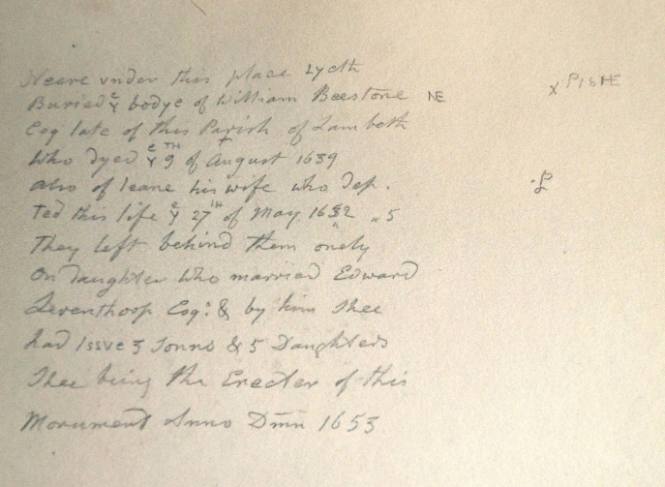 Neare vnder this place Lyeth
Buried yᵉ bodye of William Beestone NE x PISHE
Esq late of this Parish of Lambeth
Who dyed yᵉ 9ᵀᴴ of August 1639
also of leane his wife who Dep.
Ted this life yᵉ 27ᵀᴴ of May 1632 5
They left behind them onely
On Daughter Who married Edward
Leventhoop Esqʳ: & by him Shee
had Issve 3 Sonns & 5 Daughters
Shee being the Erecter of this
Monument Anno Dmn 1653